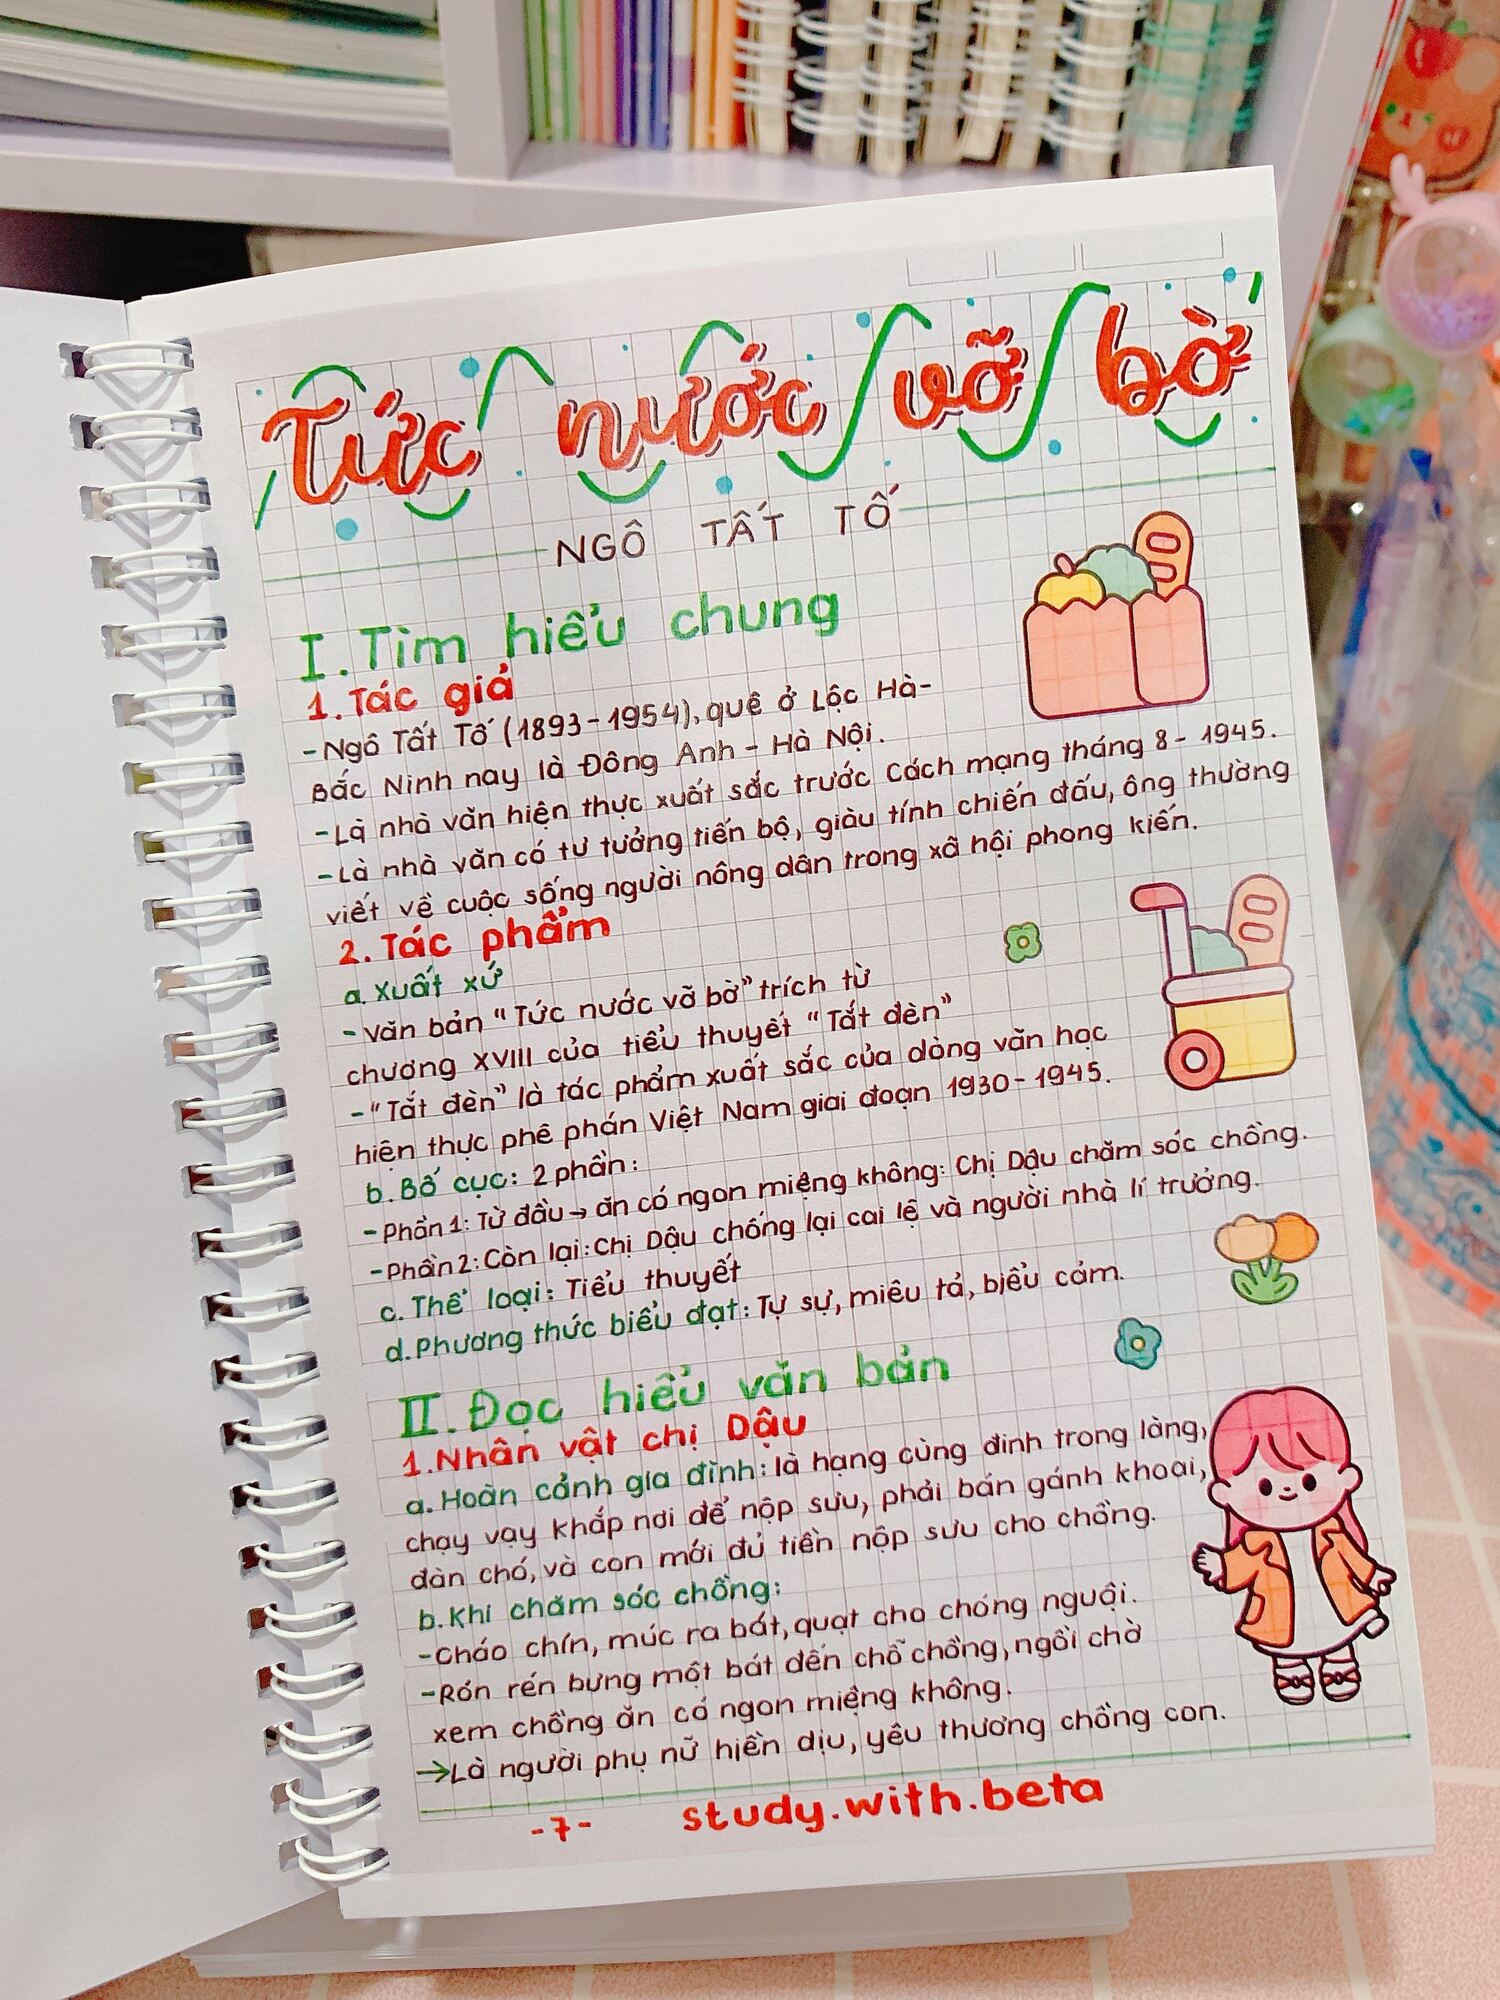 Tức nước vỡ bờ
NGÔ TẤT TỐ
I. Tìm hiểu chung
1. Tác giả
- Ngô Tất Tố (1893 - 1954), quê ở Lộc Hà -
Bắc Ninh nay là Đông Anh - Hà Nội.
- Là nhà văn hiện thực xuất sắc trước Cách mạng tháng 8 - 1945.
- Là nhà văn có tư tưởng tiến bộ, giàu tính chiến đấu, ông thường
viết về cuộc sống người nông dân trong xã hội phong kiến.
2. Tác phẩm
a. Xuất xứ
- Văn bản "Tức nước vỡ bờ" trích từ
chương XVIII của tiểu thuyết "Tắt đèn"
- "Tắt đèn" là tác phẩm xuất sắc của dòng văn học
hiện thực phê phán Việt Nam giai đoạn 1930 - 1945.
b. Bố cục: 2 phần:
- Phần 1: Từ đầu → ăn có ngon miệng không: Chị Dậu chăm sóc chồng.
- Phần 2: Còn lại: Chị Dậu chống lại cai lệ và người nhà lí trưởng.
c. Thể loại: Tiểu thuyết
d. Phương thức biểu đạt: Tự sự, miêu tả, biểu cảm.
II. Đọc hiểu văn bản
1. Nhân vật chị Dậu
a. Hoàn cảnh gia đình: là hạng cùng đinh trong làng,
chạy vạy khắp nơi để nộp sưu, phải bán gánh khoai,
đàn chó, và con mới đủ tiền nộp sưu cho chồng.
b. Khi chăm sóc chồng:
- Cháo chín, múc ra bát, quạt cho chóng nguội.
- Rón rén bưng một bát đến chỗ chồng, ngồi chờ
xem chồng ăn có ngon miệng không.
→ Là người phụ nữ hiền dịu, yêu thương chồng con.
- 7 - study.with.beta